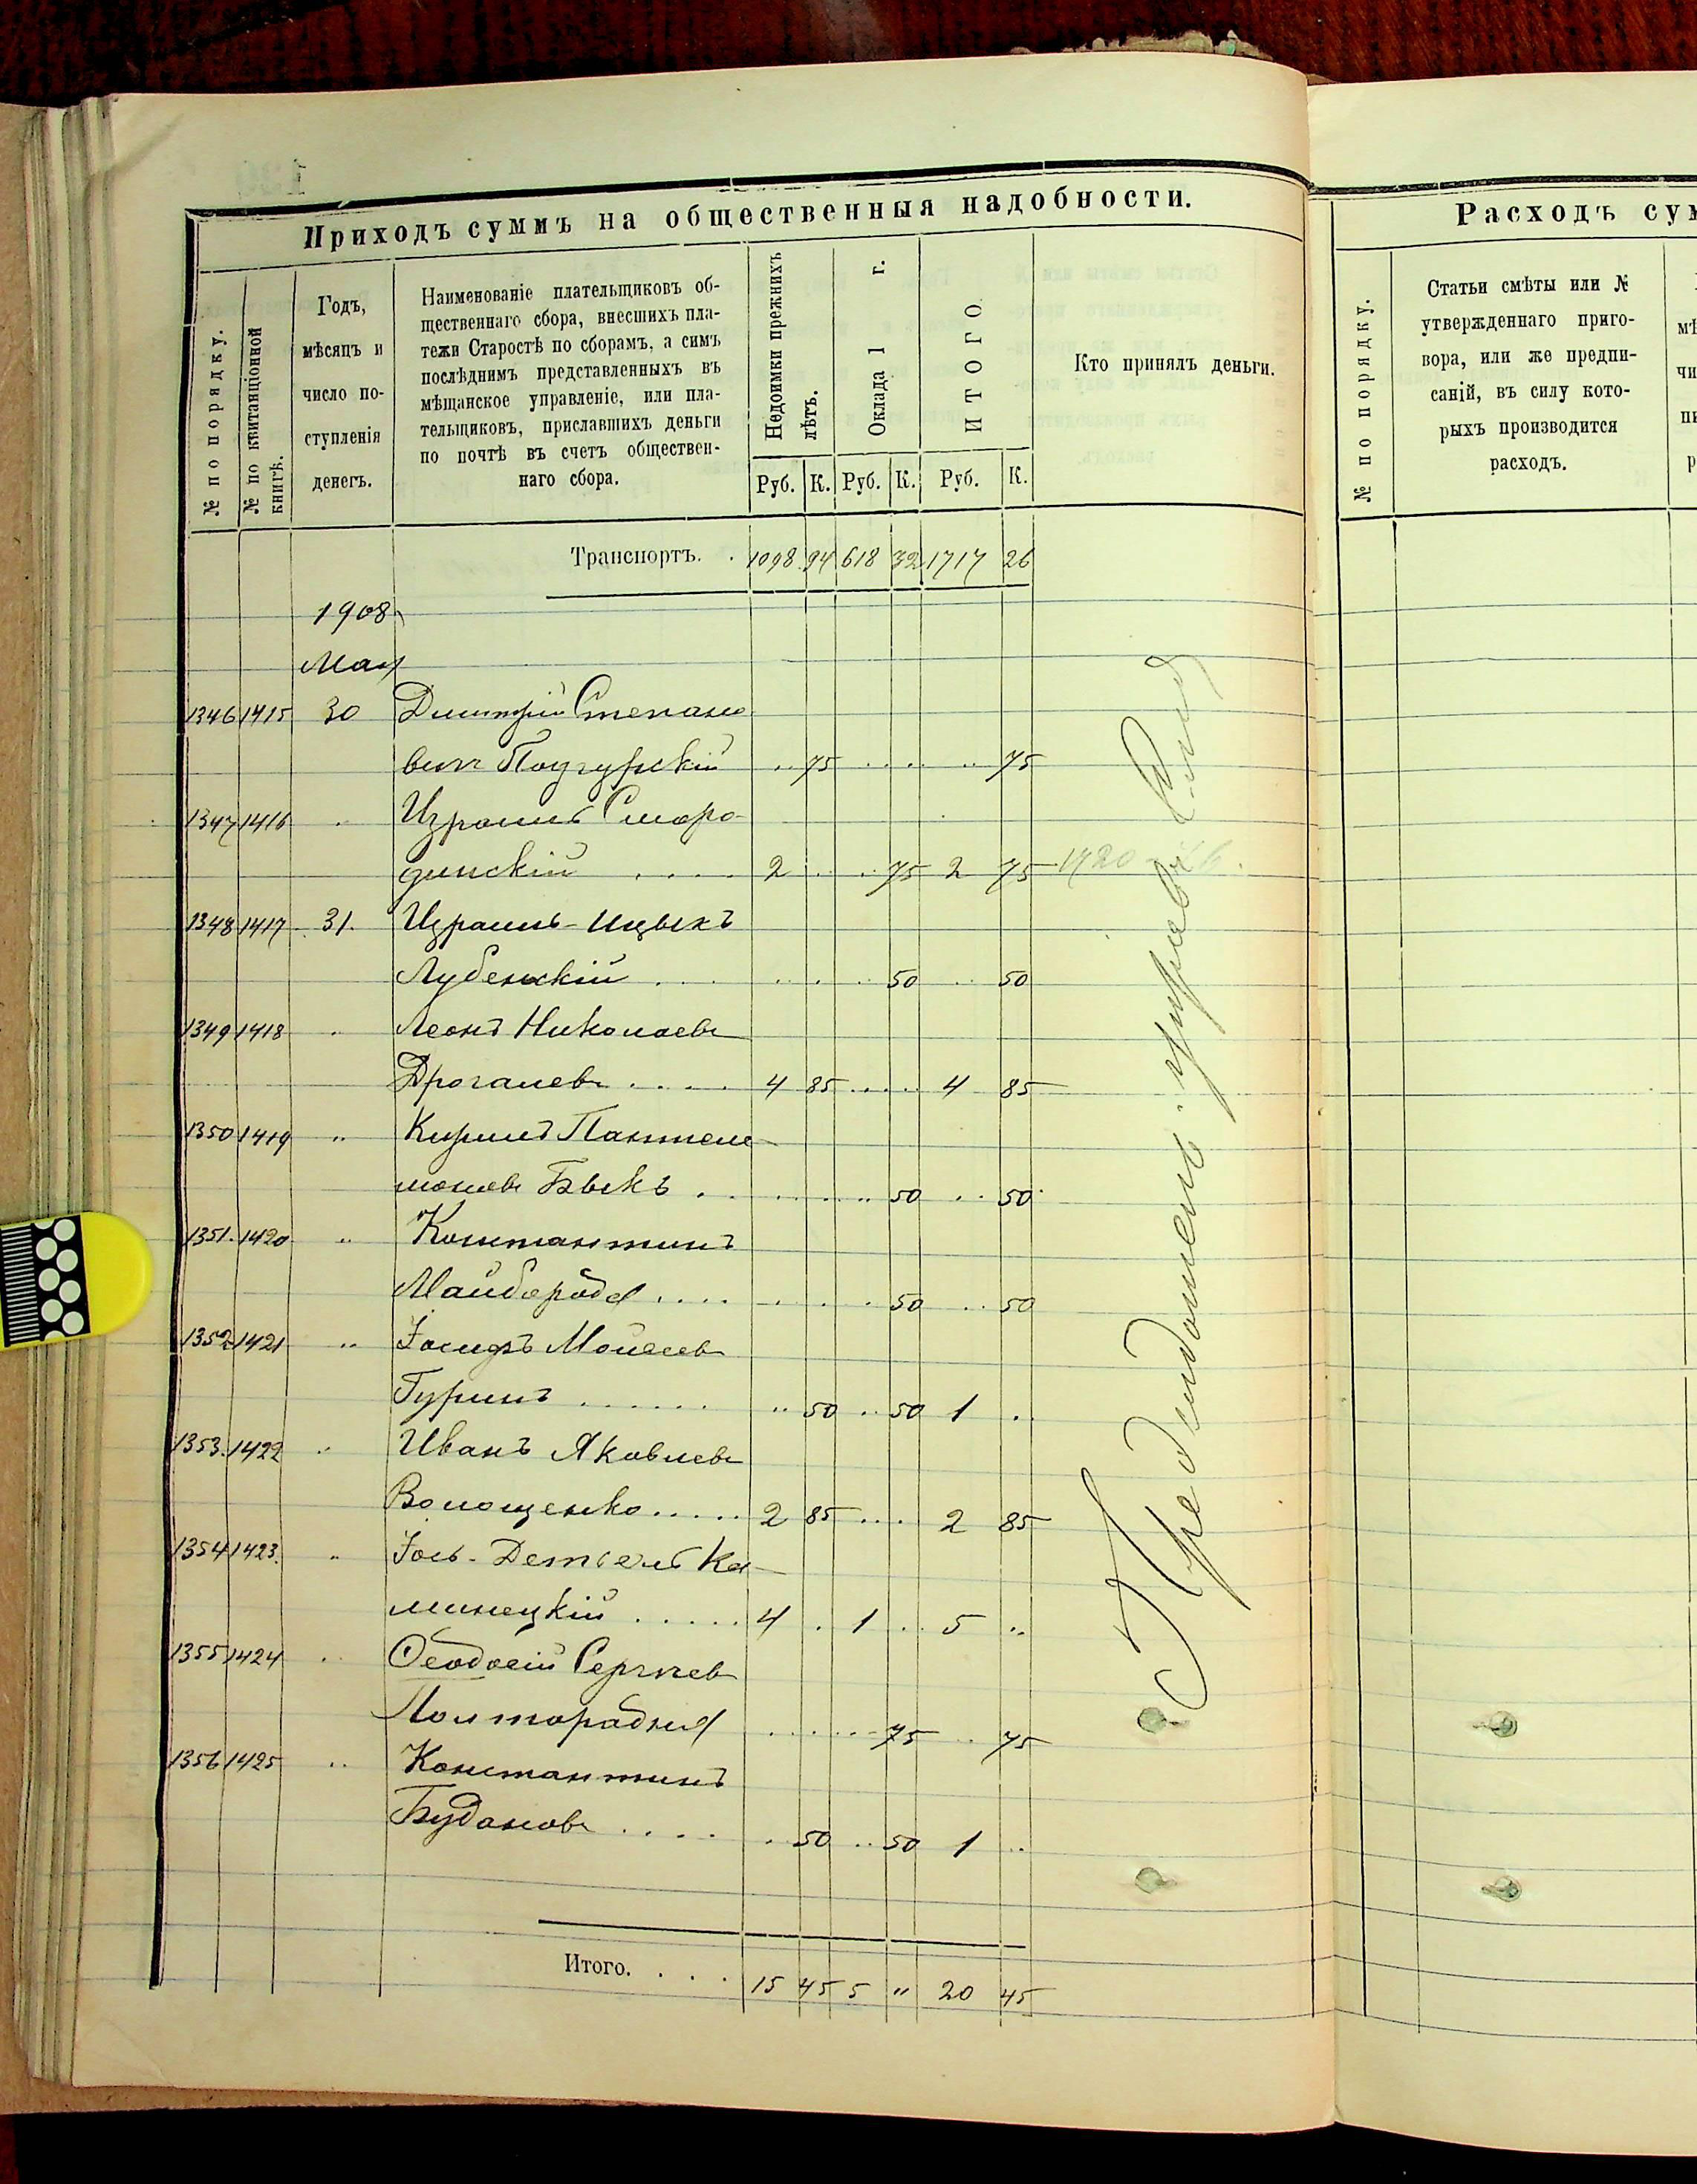 Приходъ суммъ на общественныя надобности.
№ по порядку.
№ по квитанціонной книгѣ.
Годъ,
мѣсяцъ и
число по-
ступленія
денегъ.
Наименованіе плательщиковъ об-
щественнаго сбора, внесшихъ пла-
тежи Старостѣ по сборамъ, а симъ
послѣднимъ представленныхъ въ
мѣщанское управленіе, или пла-
тельщиковъ, приславшихъ деньги
по почтѣ въ счетъ обществен-
наго сбора.
Недоимки прежнихъ лѣтъ.
Оклада 1 г.
ИТОГО
Руб. К. Руб. К. Руб. К.
Кто принялъ деньги.
Транспортъ. . 1098 94 618 32 1717 26
1908
Мая
1346 1415 30 Дмитрій Степано
вич 75 75
1347 1416 Израиль Сморо-
динскій . . . . 2 75 2 75
1348 1417 31. Израиль-Ицыкъ
Лубенскій . . . 50 50
1349 1418 Леонъ Николаев
Дрогалев . . . . 4 85 4 85
1350 1419 " Кирилъ Пантеле
монов Быкъ . 50 50
1351. 1420 " Константинъ
Майборода . . . . 50 50
1352 1421 " Іосифъ Моисеев
Гуринъ . . . . . . " 50 50 1
1353. 1422 " Иванъ Яковлев
Волощенко . . . . . 2 85 2 85
1354 1423. " Ка-
минецкій . . . . . 4 1 5 "
1355 1424 Ѳеодосій Сергѣев
Полторадня 75 75
1356 1425 " Константинъ
Буданов . . . . 50 50 1
Итого. . . . 15 45 5 " 20 45
Расходъ сум
№ по порядку.
Статьи смѣты или №
утвержденнаго приго-
вора, или же предпи-
саній, въ силу кото-
рыхъ производится
расходъ.